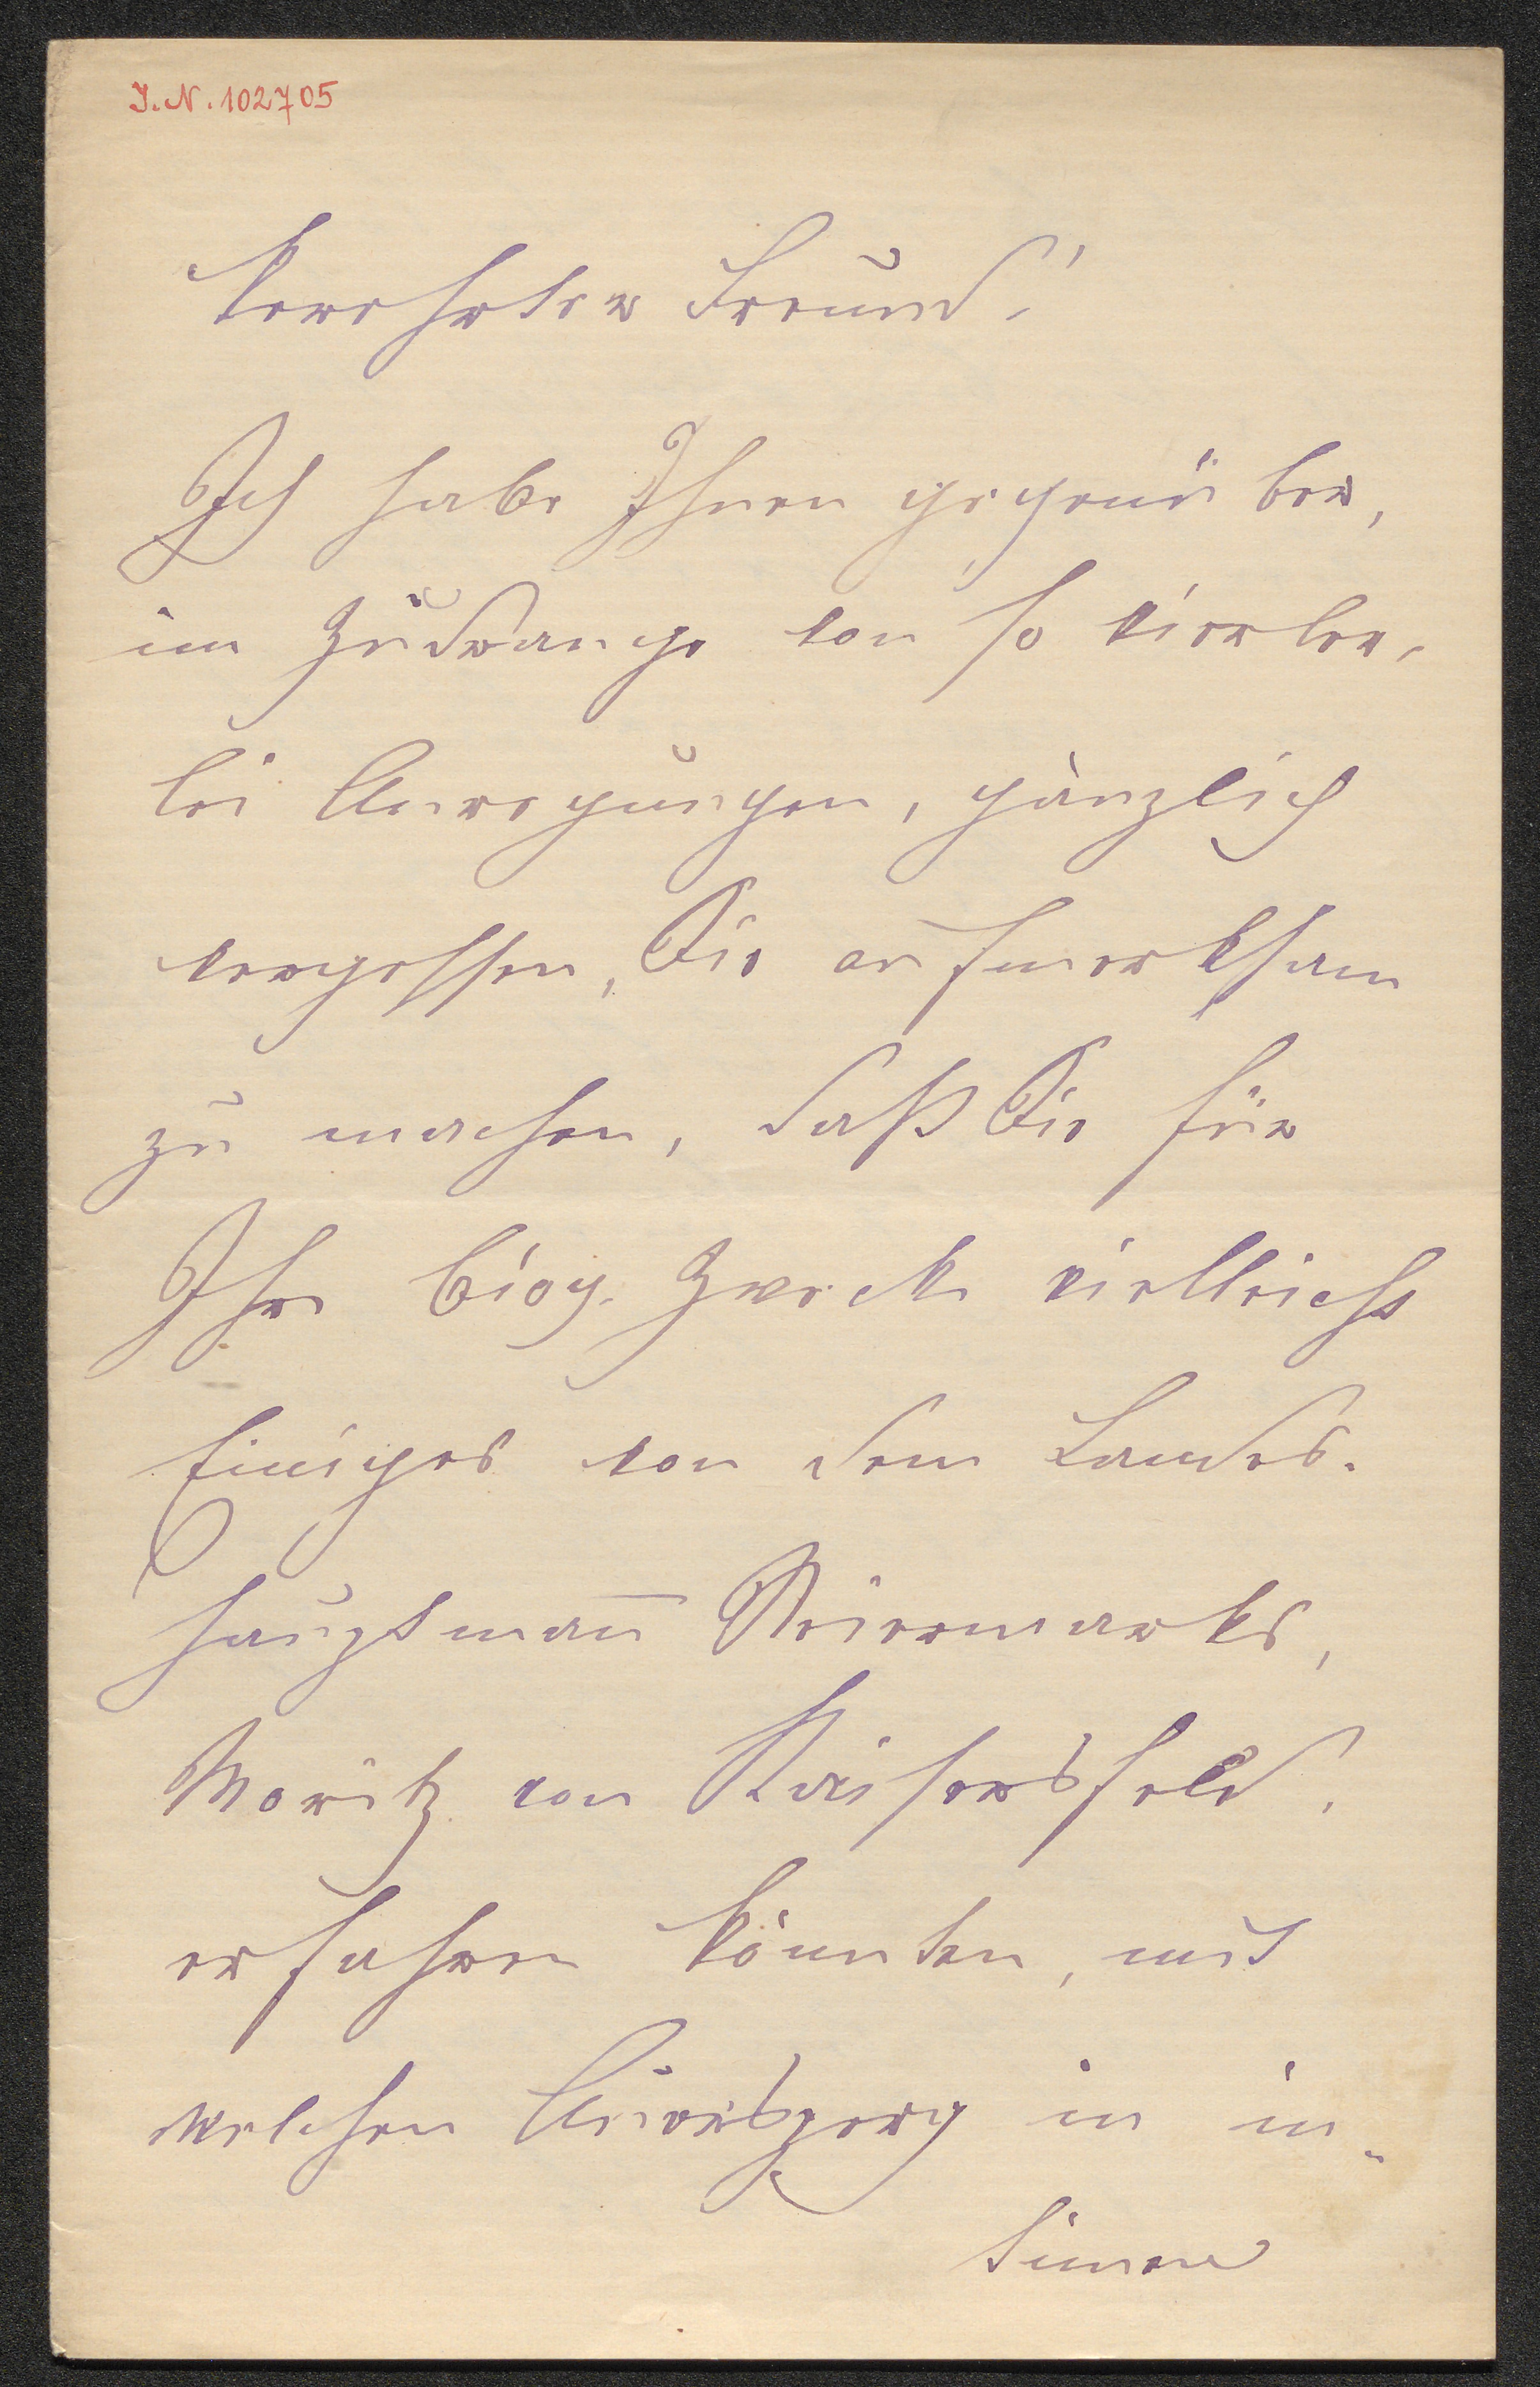 I.N. 102705
Verehrter Freund!
Ich habe Ihnen gegenüber,
im Zudrange von so vieler-
lei Anregungen, gänzlich
vergessen, Sie aufmerksam
zu machen, daß Sie für
Ihre biog. Zwecke vielleicht
Einiges von dem Landes-
hauptmann̄ Steiermarks,
Moritz von Kaisersfeld,
erfahren könnten, mit
welchem Auersperg in in-
timem